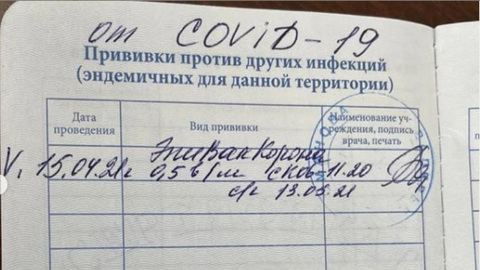 от COVID-19
Прививки против других инфекций
(эндемичных для данной территории)
Дата
проведения
Вид прививки
Наименование уч-
реждения, подпись
врача, печать
V, 15.04.21г ЭпиВакКорона
0,5 в/м 11.20
с/г 13.05.21